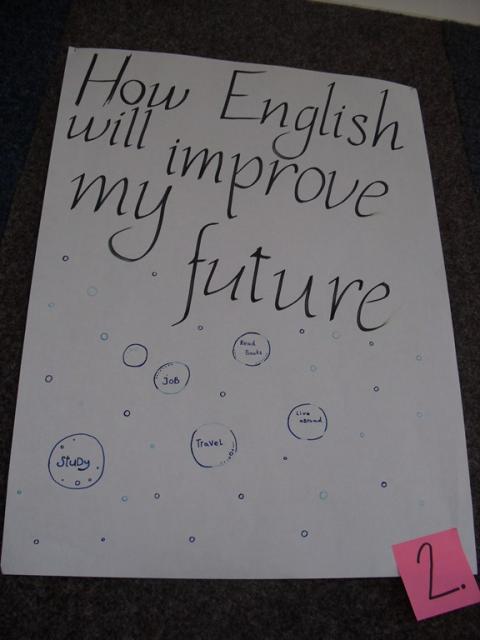 How English
will improve
my future
Read
Books
JOB
Live
abroad
Travel
Study
2.